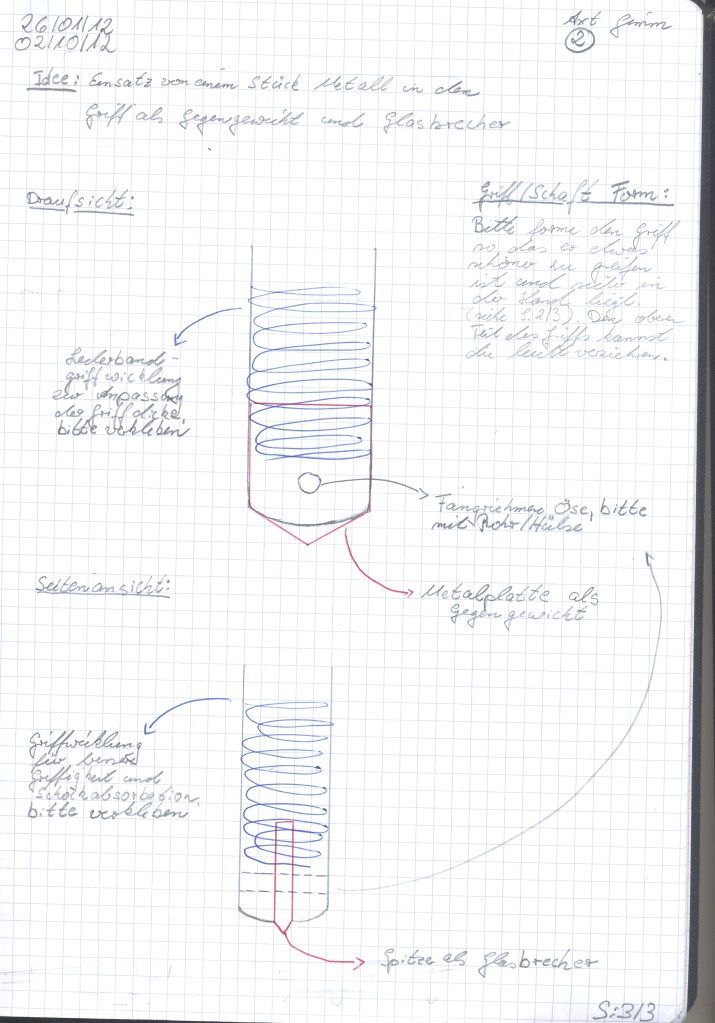 26/01/12
02/10/12
Axt Grimm
2
Idee: Einsatz von einem Stück Metall in den
Griff als Gegengewicht und Glasbrecher
Draufsicht:
Griff/Schaft Form:
Bitte forme den Griff
so das er etwas
schöner zu greifen
ist und in
der Hand liegt.
(siehe S. 2/3). Den oberen
Teil des Griffs kannst
du leicht verzieren.
Lederband-
griffwicklung
zur Anpassung
der Griffdicke,
bitte verkleben
Fangriemen Öse, bitte
mit Rohr/Hülse
Metalplatte als
Gegengewicht
Seitenansicht:
Griffwicklung
für bessere
Griffigkeit und
Schockabsorbation,
bitte verkleben
Spitze als Glasbrecher
S:3/3